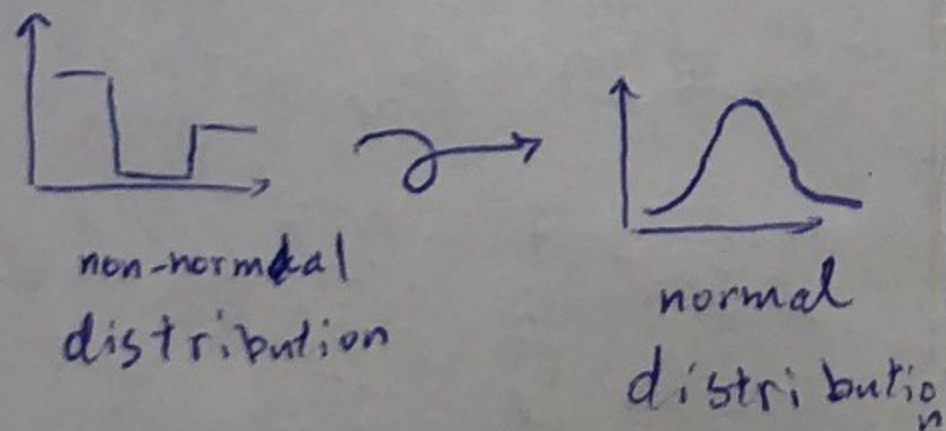 non-normal
distribution
normal
distribution